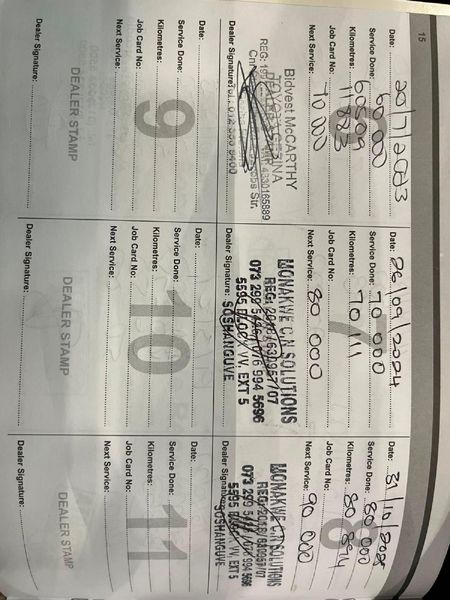 15
Date: 20/7/2023
Service Done: 60 000
Kilometres: 60509
Job Card No: 117883
Next Service: 70 000
Bidvest McCARTHY
Dealer Signature:
Date: 26/09/2024
Service Done: 70 000
Kilometres: 70 111
Job Card No:
Next Service: 80 000
MONAKWE C.N SOLUTIONS
073 299
016 994 5696
5595 BLOCK VV, EXT 5
SOSHANGUVE
Dealer Signature:
8
Date: 31/10/2025
Service Done: 80 000
Kilometres: 80 894
Job Card No:
Next Service: 90 000
MONAKWE C.N SOLUTIONS
073 299
994 5696
5595 BLOCK VV, EXT 5
SOSHANGUVE
Dealer Signature:
9
Date:
Service Done:
Kilometres:
Job Card No:
Next Service:
DEALER STAMP
Dealer Signature:
10
Date:
Service Done:
Kilometres:
Job Card No:
Next Service:
DEALER STAMP
Dealer Signature:
11
Date:
Service Done:
Kilometres:
Job Card No:
Next Service:
DEALER STAMP
Dealer Signature: